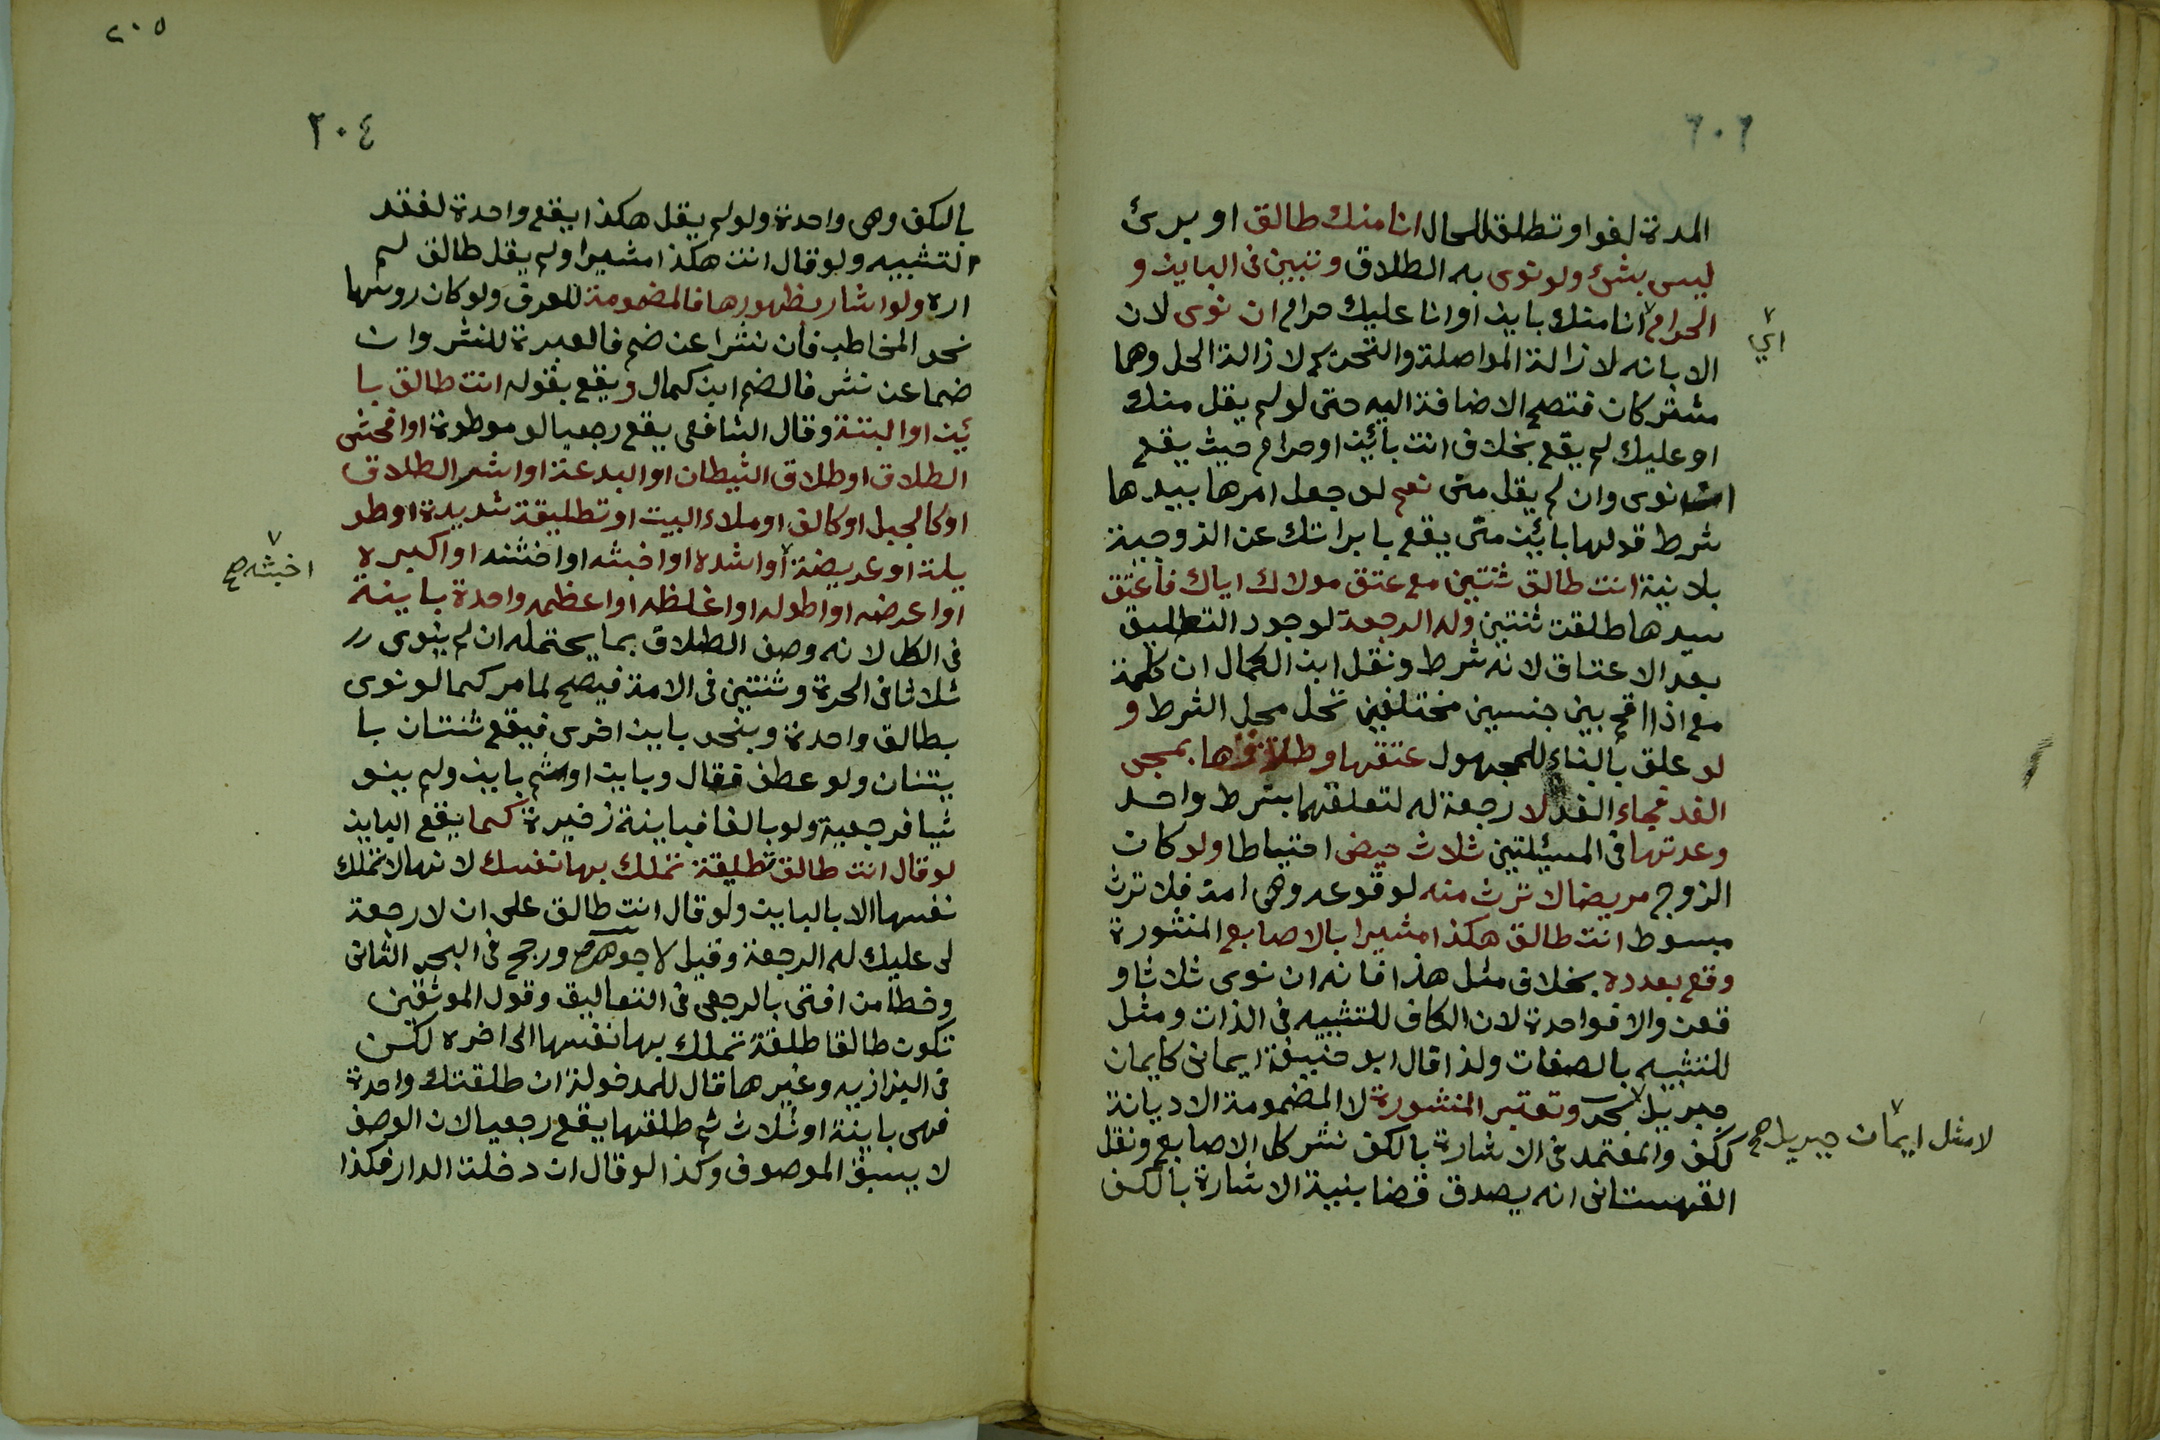 ٢٠٢
المدة لغو او تطلق للحال انا منك طالق او برئ
ليس بشئ ولو نوى به الطلاق وتبين فى الباين و
الحرام انا منك باين او انا عليك حرام ان نوى لان
اي
الابانه لازالة المواصلة والتحريم لازالة الحل وهما
مشتركان فتصح الاضافة اليه حتى لو لم يقل منك
او عليك لم يقع بخلاف انت بائن او حرام حيث يقع
اذا نوى وان لم يقل منى نعم لو جعل امرها بيدها
شرط قولها بائن منى يقع بابراتك عن الزوجية
بلانية انت طالق ثنتين مع عتق مولاك اياك فاعتق
سيدها طلقت ثنتين وله الرجعة لوجود التطليق
بعد الاعتاق لانه شرط ونقل ابن الكمال ان كلمة
مع اذا اقحم بين جنسين مختلفين تحل محل الشرط و
لو علق بالبناء للمجهول عتقها وطلاقها بمجئ
الغد فجاء الغد لا رجعة له لتعلقهما بشرط واحد
وعدتها فى المسئلتين ثلاث حيض احتياطا ولو كان
الزوج مريضا لا ترث منه لوقوعه وهى امة فلا ترث
مبسوط انت طالق هكذا مشيرا بالاصابع المنشورة
وقع بعدده بخلاف مثل هذا فانه ان نوى ثلاثا و
قعن والا فواحدة لان الكاف للتشبيه فى الذات ومثل
للتشبيه بالصفات ولذا قال ابو حنيفة ايمانى كايمان
جبريل بحر وتعتبر المنشورة لا المضمومة الا ديانة
لا مثل ايمان جبريل صح
ككف والمعتمد فى الاشارة بالكف نشر كل الاصابع ونقل
القهستانى انه يصدق قضا بنية الاشارة بالكف
٢٠٥
٢٠٤
بالكف وهى واحدة ولو لم يقل هكذا يقع واحدة لفقد
التشبيه ولو قال انت هكذا مشيرا ولم يقل طالق لم
اره ولو اشار بظهورها فالمضمومة للعرف ولو كان روسها
نحو المخاطب فان نشرا عن ضم فالعبرة للنشر وان
ضما عن نشر فالضم ابن كمال ويقع بقوله انت طالق با
ئن او البتة وقال الشافعى يقع رجعيا لو موطوة او افحش
الطلاق او طلاق الشيطان او البدعة او اشر الطلاق
او كالجبل او كالف او ملاء البيت او تطليقة شديدة او طو
يلة او عريضة او اشده او اخبثه او اخشنه او اكبره
اخبثه صح
او اعرضه او اطوله او اغلظه او اعظمه واحدة باينة
فى الكل لانه وصف الطلاق بما يحتمله ان لم ينوى رر
ثلاثا فى الحرة وثنتين فى الامة فيصح لما مر كما لو نوى
بطالق واحدة وبنحو باين اخرى فيقع ثنتان با
ينتان ولو عطف فقال وباين او ثم باين ولم ينو
شيا فرجعية ولو بالفا فباينة ذخيرة كما يقع الباين
لو قال انت طالق تطليقة تملك بها نفسك لانها لا تملك
نفسها الا بالباين ولو قال انت طالق على ان لا رجعة
لى عليك له الرجعة وقيل لا جوهره ورجح فى البحر الثانى
وخطا من افتى بالرجعى فى التعاليق وقول الموثقين
تكون طالقا طلقة تملك بها نفسها الى اخره لكن
فى البزازيه وغيرها قال للمدخولة ان طلقتك واحدة
فهى باينة او ثلاث ثم طلقها يقع رجعيا لان الوصف
لا يسبق الموصوف وكذا لو قال ان دخلت الدار فكذا